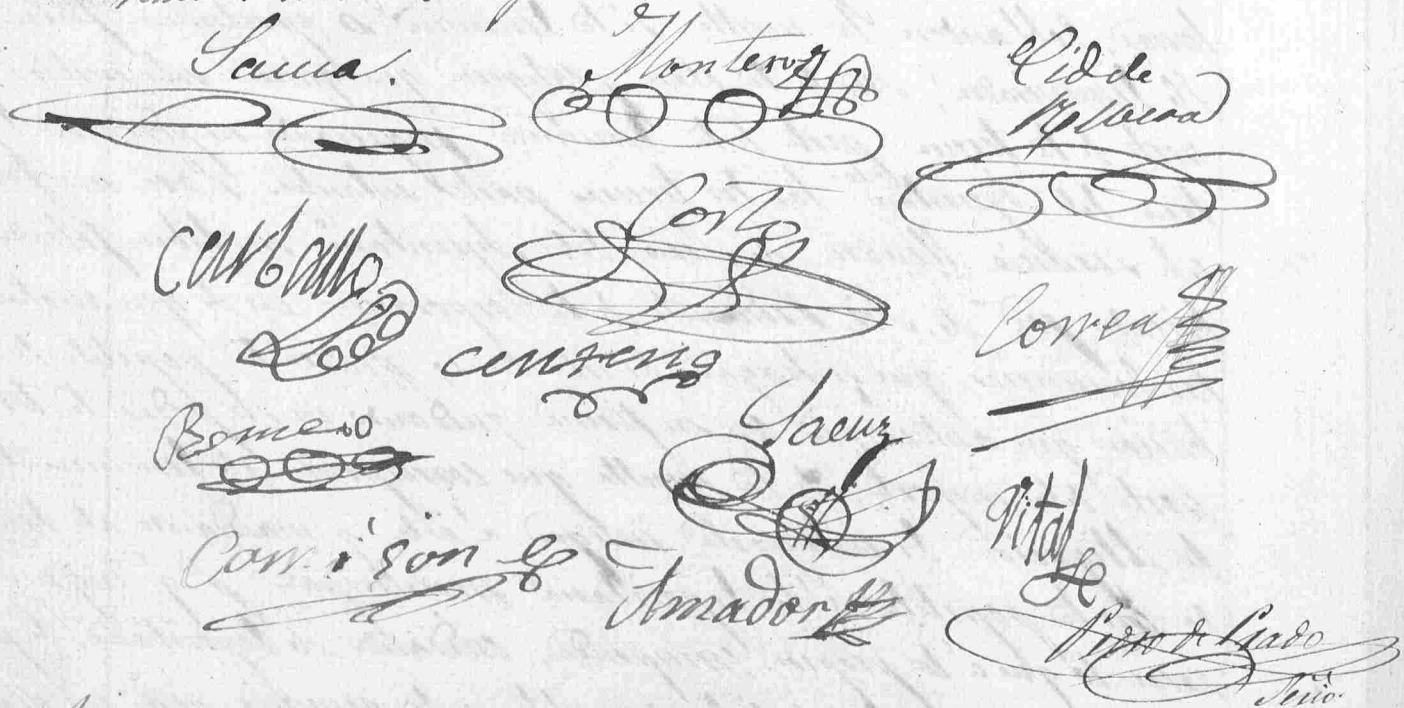 Montero
Cid de
Carballo
Corto
Correa
Centeno
Romero
Saenz
Vital
Carrison
Amador
Pedro de Prado
Serio.